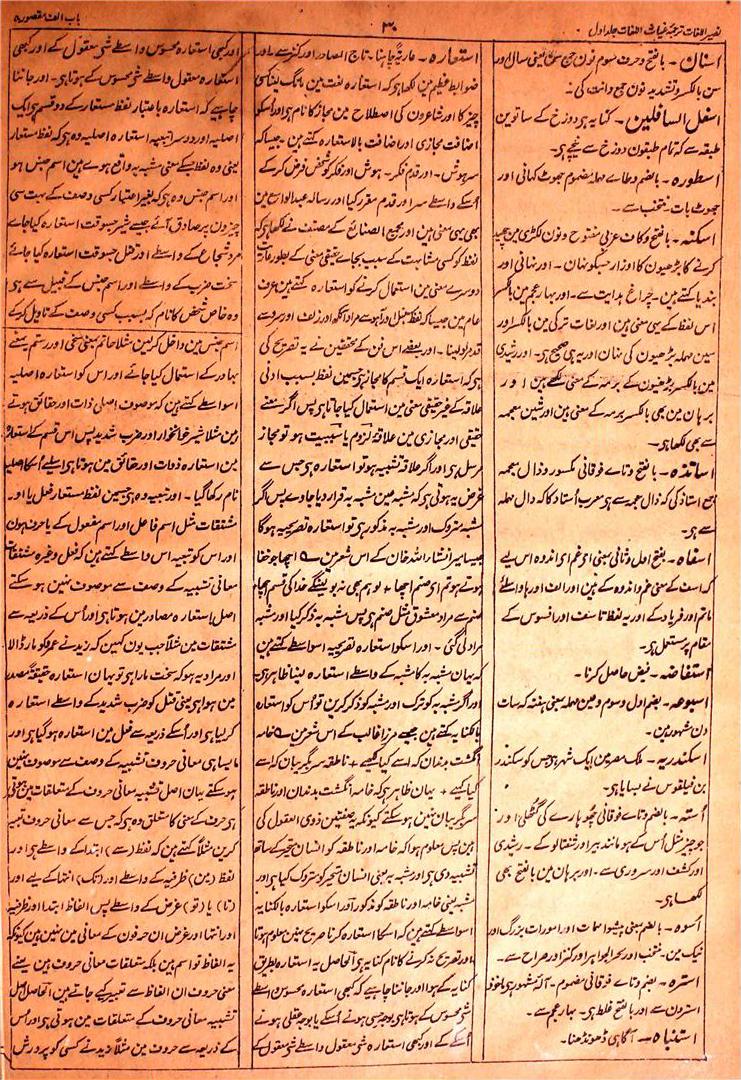 باب الف مقصورہ
۳۰
نصیر اللغات ترجمۂ غیاث اللغات جلد اول
اسنان۔ بالفتح وحرف سوم نون جمع سن بمعنی سال اور
سن بالکسر وتشدید نون جمع دانت کی
اسفل السافلین۔ کنایہ ہی دوزخ کے ساتوین
طبقہ سے کہ تمام طبقون دوزخ سے نیچے ہی۔
اسطورہ۔ بالضم وطاے مہملہ مضموم جھوٹ کہانی اور
جھوٹ بات منتخب سے۔
اسکنہ۔ بالفتح وکاف عربی مفتوح ونون لکڑی مین چھید
کرنے کا بڑھیون کا اوزار جسکو نہان۔ اور نہانی اور
بندیا کہتے ہین۔ چراغ ہدایت سے۔ اور بہار عجم مین بالکسر
اس لفظ کے یہی معنی ہین اور لغات ترکی مین بالکسر اور
سین مہملہ بڑھیون کی نہان اور یہی صحیح ہی۔ اور رشیدی
مین بالکسر بڑھیون کے برمہ کے معنی لکھے ہین اور
برہان مین بھی بالکسر برمہ کے معنی ہین اور شین معجمہ
سے بھی لکھا ہی۔
اساتذہ۔ بالفتح وتاے فوقانی مکسور وذال معجمہ
جمع استاذ کی کہ ذال معجمہ سے ہی معرب اُستاد کا کہ دال مہملہ
سے ہی۔
اسفاہ۔ بفتح اول وثانی بمعنی ای غم ای اندوہ اس لیے
کہ اسف کے معنی غم واندوہ کے ہین اور الف اور ہا واسطے
ماتم اور فریاد کے اور یہ لفظ تاسف اور افسوس کے
مقام پر مستعمل ہی۔
استفاضہ۔ فیض حاصل کرنا۔
اسبوعہ۔ بضم اول وسوم وعین مہملہ بمعنی ہفتہ کہ سات
دن مشہور ہین۔
اسکندریہ۔ ملک مصر مین ایک شہر ہی جس کو سکندر
بن فیلقوس نے بسایا ہی۔
اُستہ۔ بالضم وتاے فوقانی چھوہارے کی گٹھلی اور
جو چیز مثل اُس کے ہو مانند بیر اور شفتالو کے۔ رشیدی
اور کشف اور سروری سے۔ اور برہان مین بالفتح بھی
لکھا ہی۔
اسوہ۔ بالضم بمعنی پیشوا اور امورات بزرگ اور
نیک مین۔ منتخب اور بحر الجواہر اور کنز اور صراح سے۔
استرہ۔ بضم وتاے فوقانی مضموم۔ آلۂ مشہور ہی ماخوذ
استردن سے اور بالفتح غلط ہی۔ بہار عجم سے۔
استنباہ۔ آگاہی ڈھونڈھنا۔
استعارہ۔ عاریۃً چاہنا۔ تاج المصادر اور کنز سے۔ اور
ضوابط عظیم مین لکھا ہی کہ استعارہ لغت مین مانگ لینا کسی
چیز کا اور شاعرون کی اصطلاح مین مجاز کا نام ہی اور اُسکو
اضافت مجازی اور اضافت بالاستعارہ کہتے ہین۔ جیسا کہ
سر ہوش۔ اور قدم فکر۔ ہوش اور فکر کو شخص فرض کر کے
اُسکے واسطے سر اور قدم مقرر کیا اور رسالہ عبدالواسع مین
بھی یہی معنی ہین اور مجمع الصنائع کے مصنف نے لکھا ہی کہ
لفظ کو کسی مشابہت کے سبب بجاے حقیقی معنی کے بطور عاریت
دوسرے معنی مین استعمال کرنے کو استعارہ کہتے ہین عرف
عام مین جیسا کہ لفظ سنبل اور آہو سے مراد آنکھ اور زلف اور سرو سے
قد مراد لینا۔ اور بعضے اس فن کے محققین نے یہ تصریح کی
ہی کہ استعارہ ایک قسم کا مجاز ہی جسمین لفظ بسبب ادنی
علاقہ کے غیر حقیقی معنی مین استعمال کیا جاتا ہی پس اگر معنے
حقیقی اور مجازی مین علاقۂ لزوم یا سببیت ہو تو مجاز
مرسل ہی اور اگر علاقہ تشبیہ ہو تو استعارہ ہی جس سے
غرض یہ ہوتی ہی کہ مشبہ عین مشبہ بہ قرار دیا جاوے پس اگر
مشبہ متروک اور مشبہ بہ مذکور ہی تو استعارہ تصریحیہ ہوگا
جیسا میر انشاء اللہ خان کے اس شعر مین ؎ اچھا جو خفا
ہوتے ہو تم ای صنم اچھا + لو ہم بھی نہ بولینگے خدا کی قسم اچھا
صنم سے مراد معشوق مثل صنم ہی پس مشبہ بہ ذکر کیا اور مشبہ
مراد لی گئی۔ اور اسکو استعارہ تصریحیہ اسواسطے کہتے ہین
کہ یہان مشبہ بہ کا مشبہ کے واسطے استعارہ لینا ظاہر ہی
اور اگر مشبہ بہ کو ترک اور مشبہ کو ذکر کرین تو اُس کو استعارہ
بالکنایہ کہتے ہین جیسے مرزا غالب کے اس شعر مین ؎ خامہ
انگشت بدندان کہ اسے کیا لکھیے + ناطقہ سر بگریبان کہ اسے
کیا کہیے + یہان ظاہر ہی کہ خامہ انگشت بدندان اور ناطقہ
سر بگریبان نہین ہو سکتے کیونکہ یہ صفتین ذوی العقول کی
ہین پس معلوم ہوا کہ خامہ اور ناطقہ کو انسان متحیر کے ساتھ
تشبیہ دی ہی اور مشبہ بہ یعنی انسان متحیر کو متروک کیا ہی اور
مشبہ یعنی خامہ اور ناطقہ کو مذکور اور اسکو استعارہ بالکنایہ
اسواسطے کہتے ہین کہ اسکا استعارہ کرنا صریح نہین معلوم ہوتا
اور تصریح نہ کرنے کا نام کنایہ ہی الحاصل یہ استعارہ بطریق
کنایہ کے ہوا اور جاننا چاہیے کہ کبھی استعارہ محسوس واسطے
شی محسوس کے ہوتا ہی بوجہ حسی ہونے اُسکے یا بوجہ عقلی ہونے
اُسکے کے اور کبھی استعارہ شی معقول واسطے شی معقول کے
اور کبھی استعارہ محسوس واسطے شی معقول کے اور کبھی
استعارہ معقول واسطے شی محسوس کے ہوتا ہی۔ اور جاننا
چاہیے کہ استعارہ باعتبار لفظ مستعار کے دو قسم ہی ایک
اصلیہ اور دوسرا تبعیہ استعارہ اصلیہ وہ ہی کہ لفظ مستعار
یعنی وہ لفظ جسکے معنی مشبہ بہ واقع ہوے ہین اسم جنس ہو
اور اسم جنس وہ ہی کہ بغیر اعتبار کسی وصف کے بہت سی
چیزون پر صادق آئے جیسے شیر جسوقت استعارہ کیا جاے
مرد شجاع کے واسطے اور قتل جسوقت استعارہ کیا جاے
سخت ضرب کے واسطے اور اسم جنس کے قبیل سے ہی
وہ خاص شخص کا نام کہ بسبب کسی وصف کے تاویل کرکے
اسم جنس مین داخل کر لین مثلاً حاتم بمعنی سخی اور رستم بمعنے
بہادر کے استعمال کیا جاے اور اس کو استعارہ اصلیہ
اسواسطے کہتے ہین کہ موصوف اصلی ذات اور حقائق ہوتے
ہین مثلاً شیر خونخوار اور ضرب شدید پس اس قسم کے استعارہ
مین استعارہ ذوات اور حقائق مین ہوتا ہی اسلیے اُسکا اصلیہ
نام رکھا گیا۔ اور تبعیہ وہ ہی جسمین لفظ مستعار فعل یا اور
مشتقات مثل اسم فاعل اور اسم مفعول کے یا حرف ہون
اور اس کو تبعیہ اس واسطے کہتے ہین کہ فعل وغیرہ مشتقات
معانی تشبیہ کے وصف سے موصوف نہین ہو سکتے
اصل استعارہ مصادر مین ہوتا ہی اور اُس کے ذریعہ سے
مشتقات مین مثلاً جب یون کہین کہ زید نے عمرو کو مار ڈالا
اور مراد یہ ہو کہ سخت مارا ہی تو یہان استعارہ حقیقۃً مصدر
مین ہوا ہی یعنی قتل کو ضرب شدید کے واسطے استعارہ
کر لیا ہی اور اُسکے ذریعہ سے فعل مین استعارہ ہوگیا ہی اور
ایسا ہی معانی حروف تشبیہ کے وصف سے موصوف نہین
ہو سکتے یہان اصل تشبیہ معانی حروف کے متعلقات مین ہوتی
ہی حرف کے معنی کا متعلق وہ ہی کہ جس سے معانی حروف تعبیر
کرین مثلاً کہتے ہین کہ لفظ (سے) ابتدا کے واسطے ہی اور
لفظ (مین) ظرفیہ کے واسطے اور (تک) انتہا کے لیے اور
(تا) یا (تو) غرض کے واسطے پس الفاظ ابتدا اور ظرفیہ
اور انتہا اور غرض ان حرفون کے معانی مین نہین ہین کیونکہ
یہ الفاظ تو اسم ہین بلکہ متعلقات معانی حروف ہین یعنے
معنی حروف ان الفاظ سے تعبیر کیے جاتے ہین الحاصل اصل
تشبیہ معانی حروف کے متعلقات مین ہوتی ہی اور اُس
کے ذریعہ سے حروف مین مثلاً زید نے کسی کو پرورش